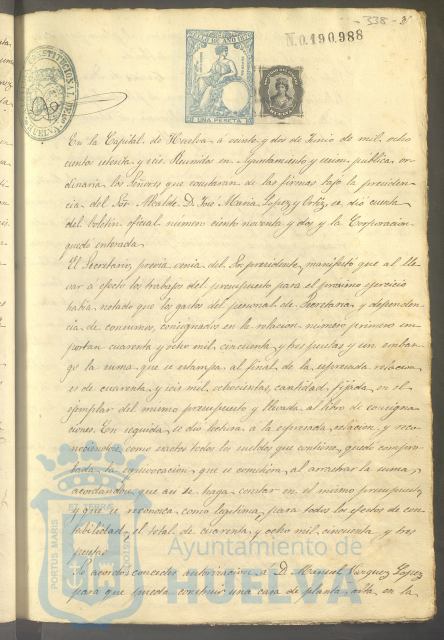 338
N.0.190,988
SELLO DE AÑO
UNA PESETA
En la Capital de Huelva á veinte y dos de Junio de mil ocho
cientos setenta y seis Reunidos en Ayuntamiento y sesion publica or-
dinaria los Señores que constaran de las firmas bajo la presiden-
cia del Sor Alcalde D. José Maria Lopez y Ortiz, se dió cuenta
del boletin oficial número ciento noventa y dos y la Corporacion
quedó enterada
El Secretario, previa venia del Sor presidente, manifestó que al lle-
var á efecto los trabajos del presupuesto para el proximo ejercicio
habia notado que los gastos del personal de Secretaria y dependen-
cia de consumos, consignados en la relacion numero primero im-
portan cuarenta y ocho mil cincuenta y tres pesetas y sin embar-
go la suma que se estampa al final de la espresada relacion
es de cuarenta y seis mil ochocientas, cantidad fijada en el
ejemplar del mismo presupuesto y llevada al libro de consigna-
ciones. En seguida se dió lectura á la espresada relacion y reco-
nociendose como exactos todos los sueldos que contiene, quedó compro-
bada la equivocacion que se cometiera al arrastrar la suma,
acordandose que asi se haga constar en el mismo presupuesto
y que se reconozca como legitima, para todos los efectos de con-
tabilidad, el total de cuarenta y ocho mil cincuenta y tres
pesetas
Se acordó conceder autorizacion a D. Manuel Vazquez Lopez
para que pueda construir una casa de planta alta en la
PORTUS MARIS
Ayuntamiento de
HUELVA